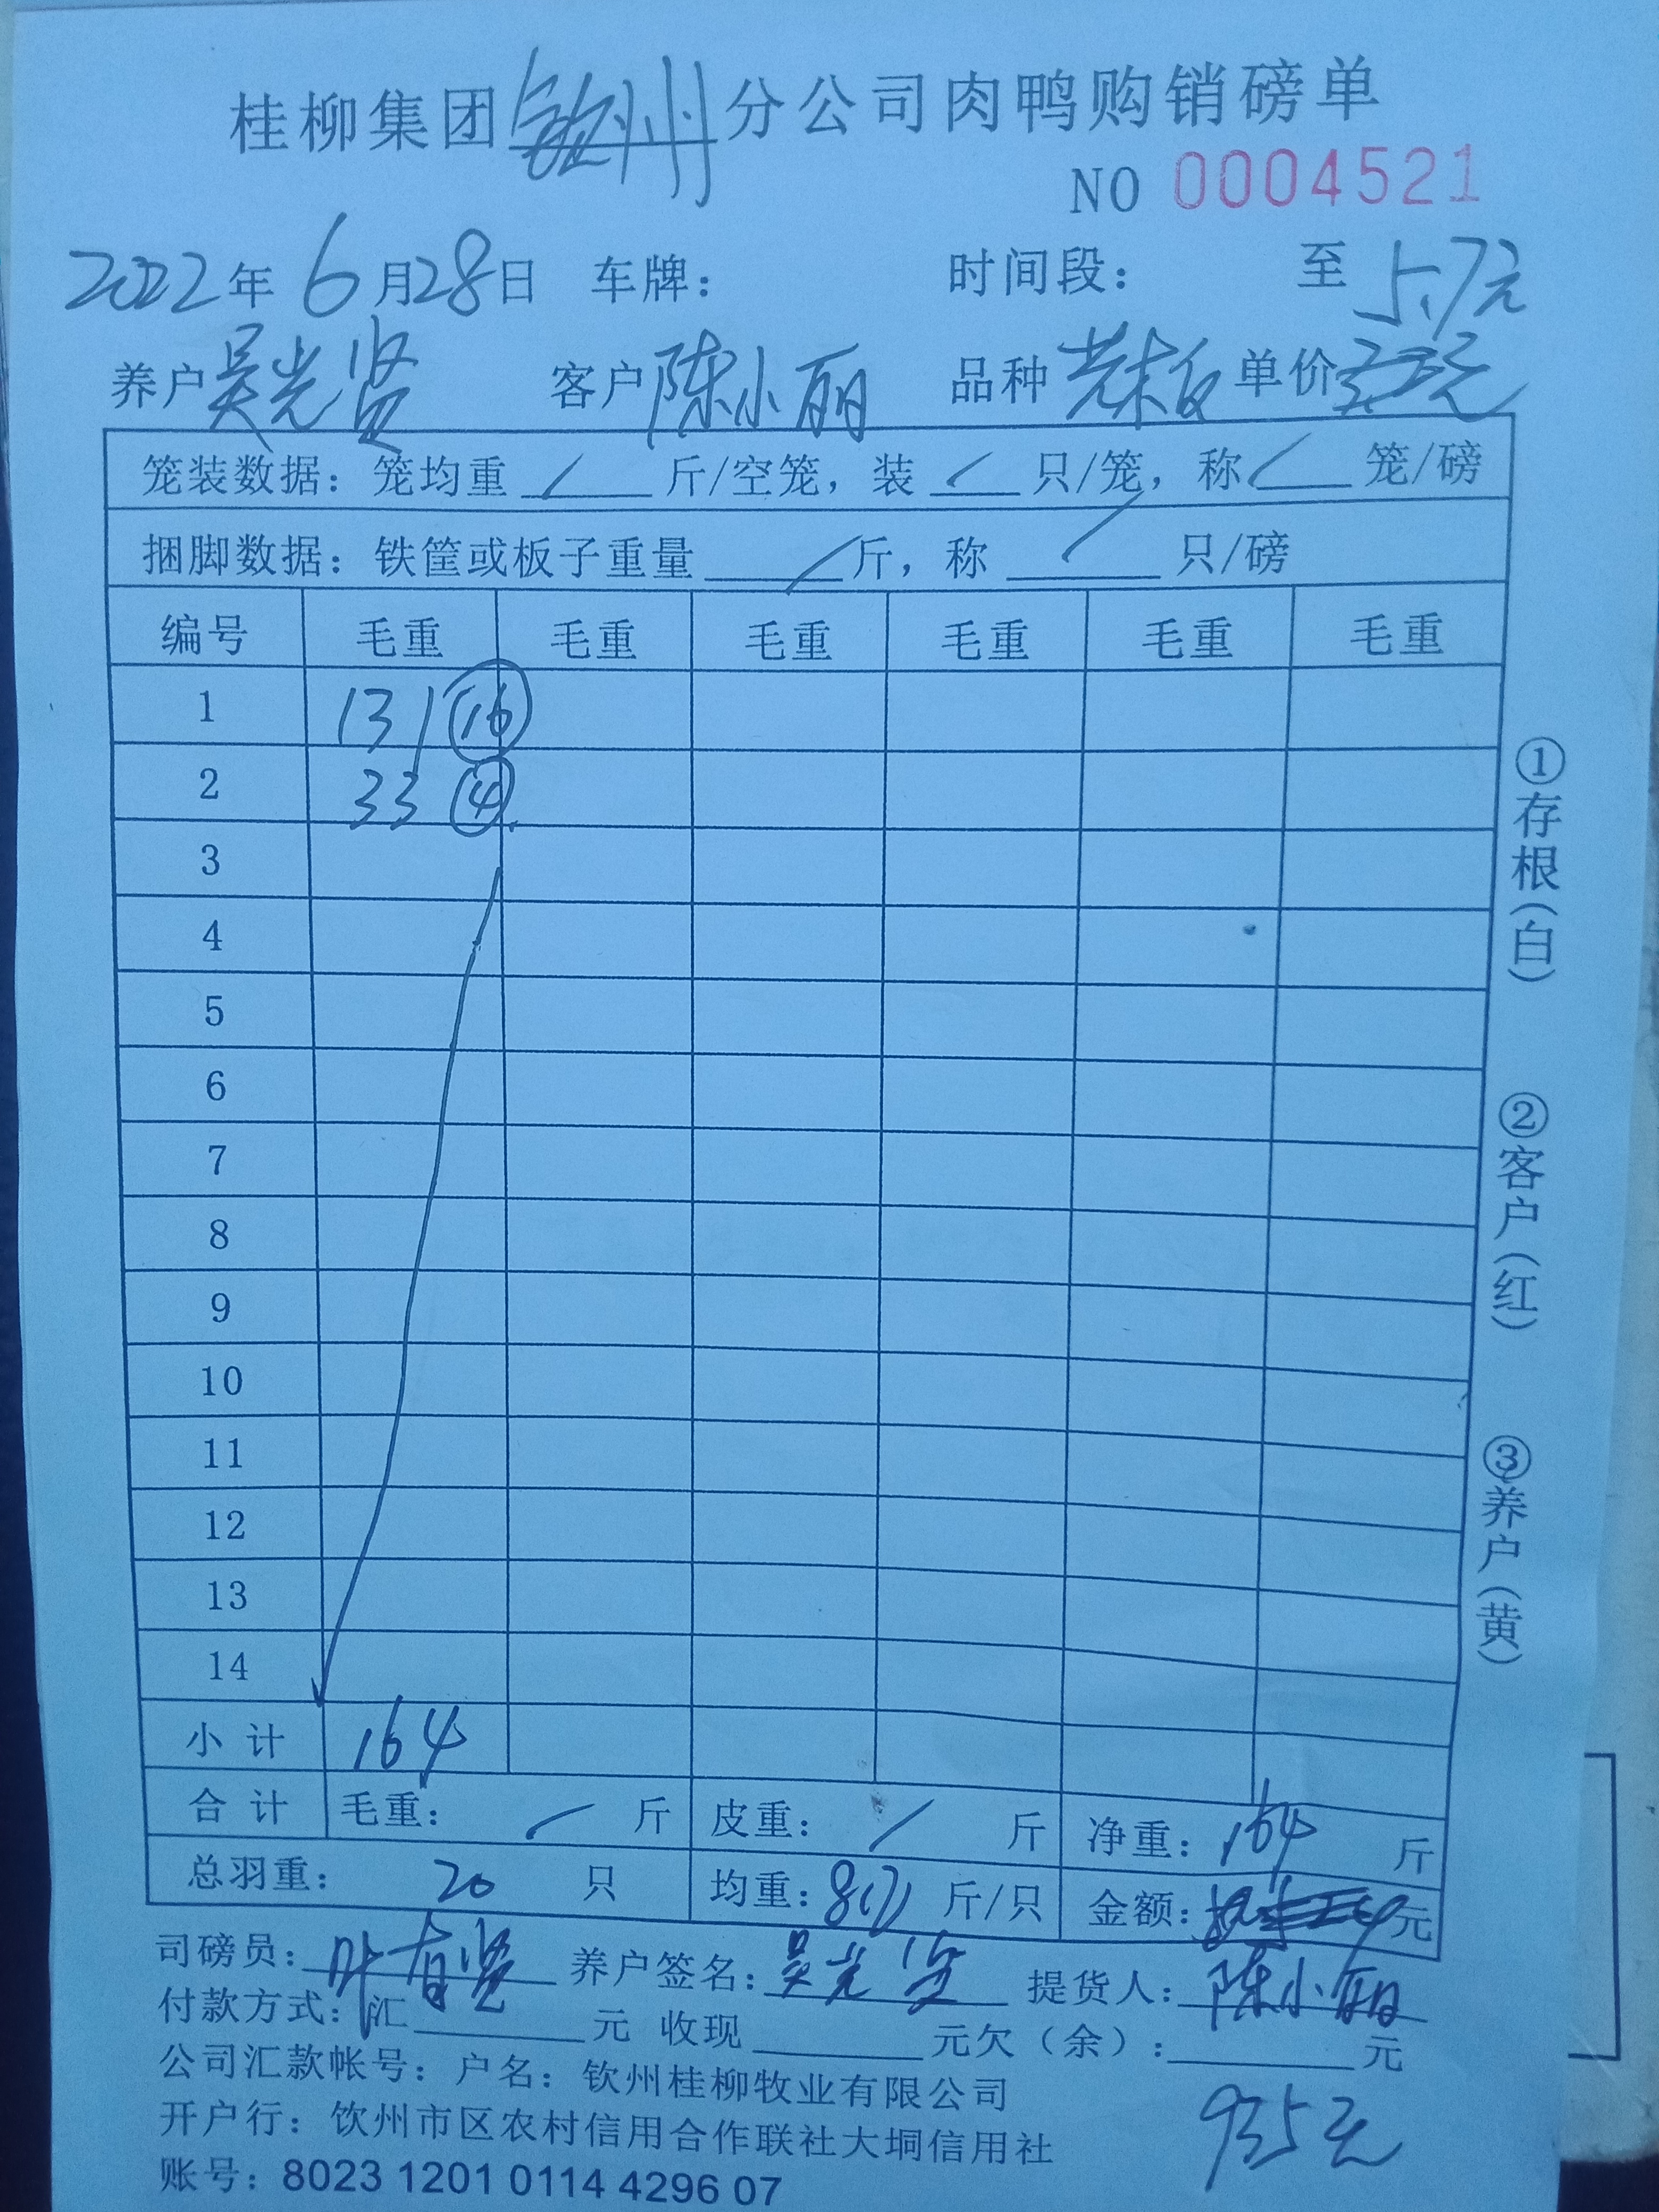 桂柳集团钦州分公司肉鸭购销磅单
NO 0004521
2022年6月28日 车牌： 时间段： 至 5.7元
养户吴光贤 客户陈小丽 品种 单价
笼装数据：笼均重 / 斤/空笼，装 / 只/笼，称 / 笼/磅
捆脚数据：铁筐或板子重量 / 斤，称 / 只/磅
编号 毛重 毛重 毛重 毛重 毛重 毛重
1 131 16
2 33 4
3
4
5
6
7
8
9
10
11
12
13
14
小计 164
合计 毛重： / 斤 皮重： / 斤 净重：164 斤
总羽重： 20 只 均重： 斤/只 金额： 元
司磅员：叶有贤 养户签名：吴光贤 提货人：陈小丽
付款方式：汇 元 收现 元欠（余）： 元
公司汇款帐号：户名：钦州桂柳牧业有限公司
开户行：饮州市区农村信用合作联社大垌信用社
935元
账号：8023 1201 0114 4296 07
①存根（白）
②客户（红）
③养户（黄）